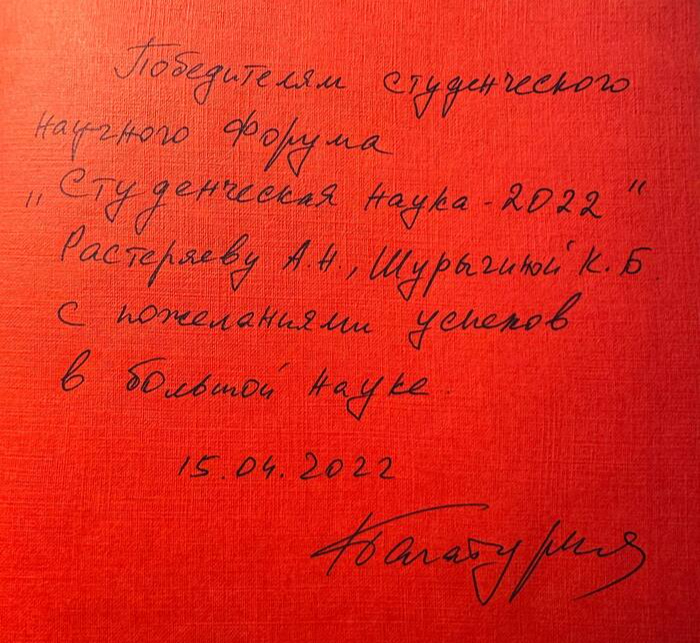 Победителям студенческого
научного форума
„Студенческая наука-2022"
Растеряеву А.Н., Шурыгиной К.Б.
с пожеланиями успехов
в большой науке.
15.04.2022